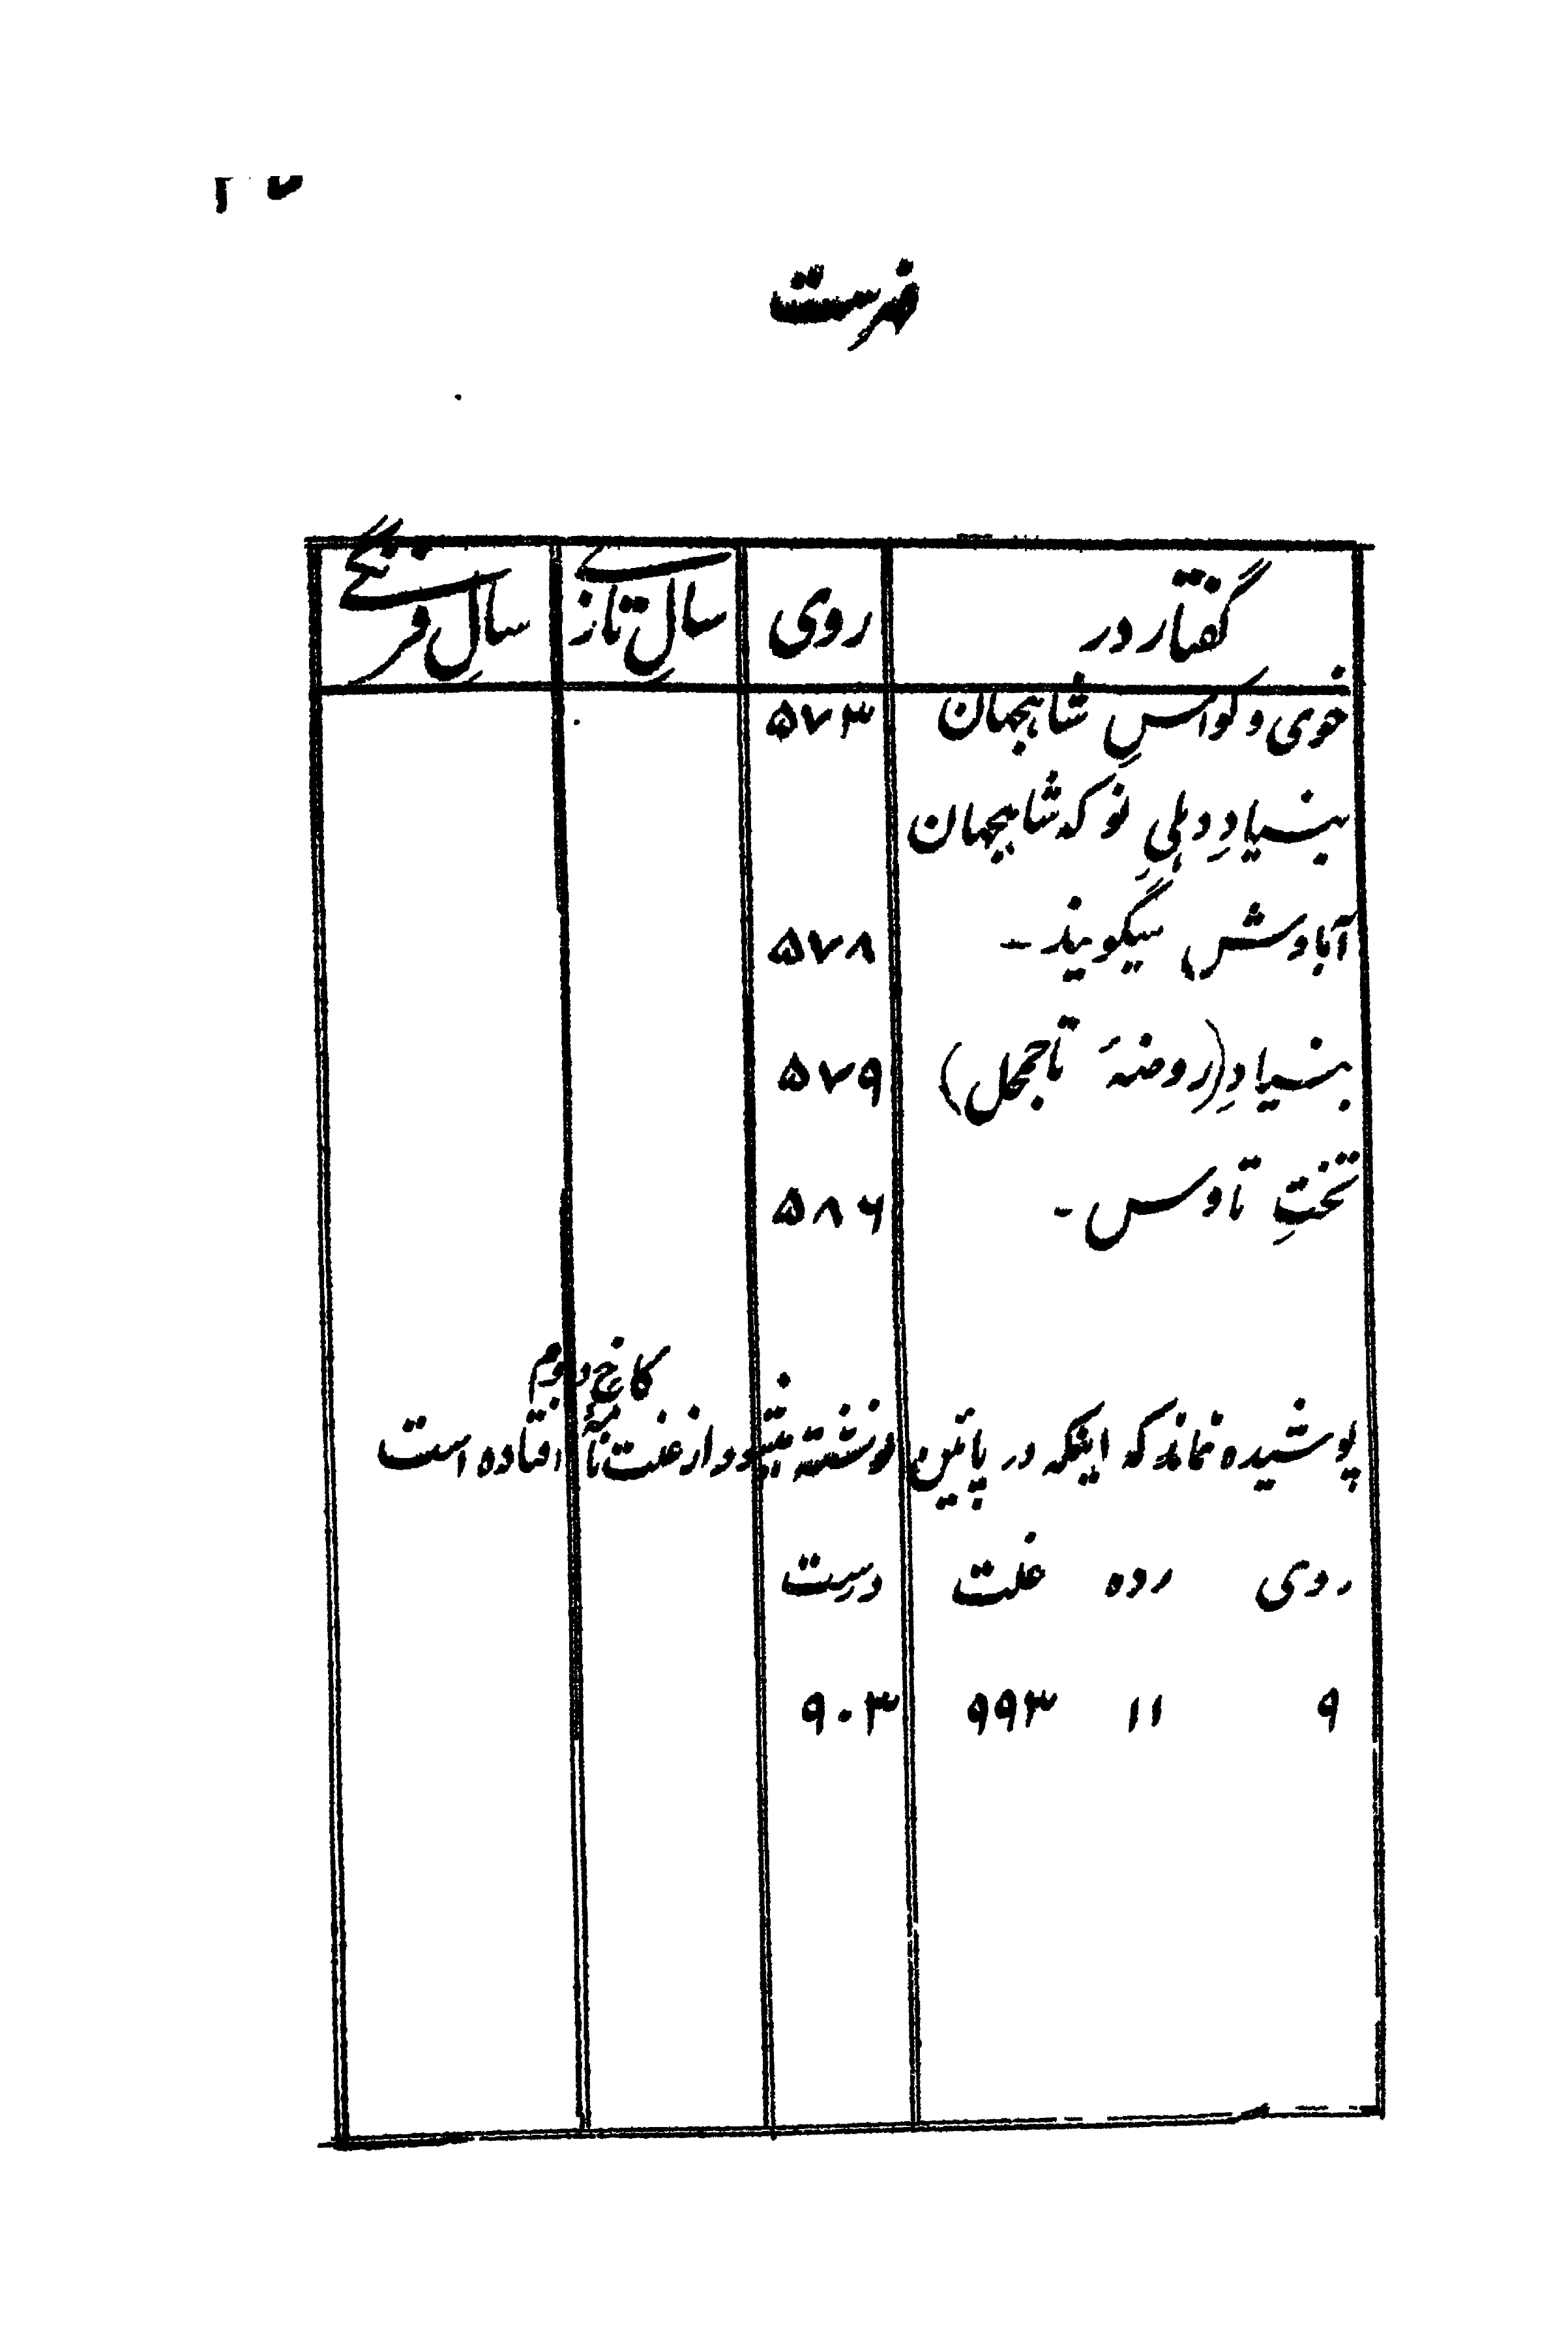 فهرست
گفتار در روی سالِ تازے سالِ فرنگے
خوی و گواسِ شاهجهان ۵۷۳
بنیادِ دهلیِ نو که شاهیجهان
آبادش میگویند - ۵۷۸
بنیادِ (روضهٔ تاجمحل) ۵۷۹
تختِ تاوس - ۵۸۶
کاخ دوم
پوشیده نماند که اینکه در پائین نوشته میشود از غلت افتاده است
روی رده غلت درست
۹ ۱۱ ۹۹۳ ۹۰۳